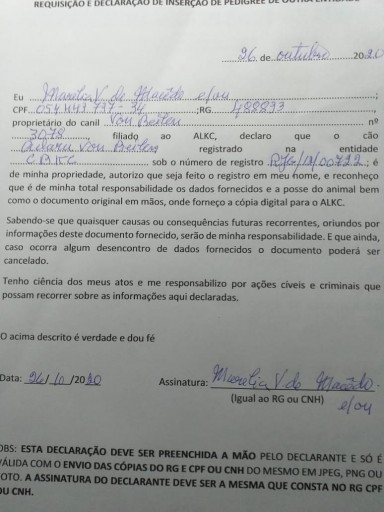 REQUISIÇÃO E DECLARAÇÃO DE INSERÇÃO DE PEDIGREE DE OUTRA
26 de outubro 2020
Eu Marilia V de Macêdo e/ou
CPF ;RG 488833
proprietário do canil Von Breiten nº
3078, filiado ao ALKC, declaro que o cão
Von Breiten registrado na entidade
C.B.K.C. sob o número de registro ; é
de minha propriedade, autorizo que seja feito o registro em meu nome, e reconheço
que é de minha total responsabilidade os dados fornecidos e a posse do animal bem
como o documento original em mãos, onde forneço a cópia digital para o ALKC.
Sabendo-se que quaisquer causas ou consequências futuras recorrentes, oriundos por
informações deste documento fornecido, serão de minha responsabilidade. E que ainda,
caso ocorra algum desencontro de dados fornecidos o documento poderá ser
cancelado.
Tenho ciência dos meus atos e me responsabilizo por ações cíveis e criminais que
possam recorrer sobre as informações aqui declaradas.
O acima descrito é verdade e dou fé
Data: 26/10/2020 Assinatura: Marilia V de Macêdo
(Igual ao RG ou CNH) e/ou
OBS: ESTA DECLARAÇÃO DEVE SER PREENCHIDA A MÃO PELO DECLARANTE E SÓ É
VÁLIDA COM O ENVIO DAS CÓPIAS DO RG E CPF OU CNH DO MESMO EM JPEG, PNG OU
FOTO. A ASSINATURA DO DECLARANTE DEVE SER A MESMA QUE CONSTA NO RG CPF
OU CNH.